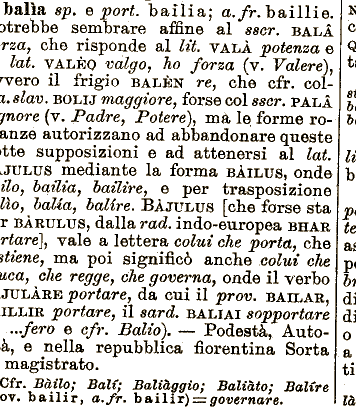 balìa sp. e port. bailia; a.fr. baillie.
otrebbe sembrare affine al sscr. BALÂ
rza, che risponde al lit. VALÀ potenza e
lat. VALÈO valgo, ho forza (v. Valere),
vero il frigio BALÈN re, che cfr. col-
a.slav. BOLIJ maggiore, forse col sscr. PALÂ
gnore (v. Padre, Potere), ma le forme ro-
anze autorizzano ad abbandonare queste
otte supposizioni e ad attenersi al lat.
AJULUS mediante la forma BÀILUS, onde
ilo, bailia, bailire, e per trasposizione
lìo, balía, balíre. BÀJULUS [che forse sta
r BÀRULUS, dalla rad. indo-europea BHAR
rtare], vale a lettera colui che porta, che
stiene, ma poi significò anche colui che
uca, che regge, che governa, onde il verbo
JULÀRE portare, da cui il prov. BAILAR,
ILLIR portare, il sard. BALIAI sopportare
...fero e cfr. Balio). — Podestà, Auto-
à, e nella repubblica fiorentina Sorta
magistrato.
Cfr. Bàilo; Balí; Baliàggio; Baliàto; Balíre
ov. bailir, a.fr. bailir)=governare.